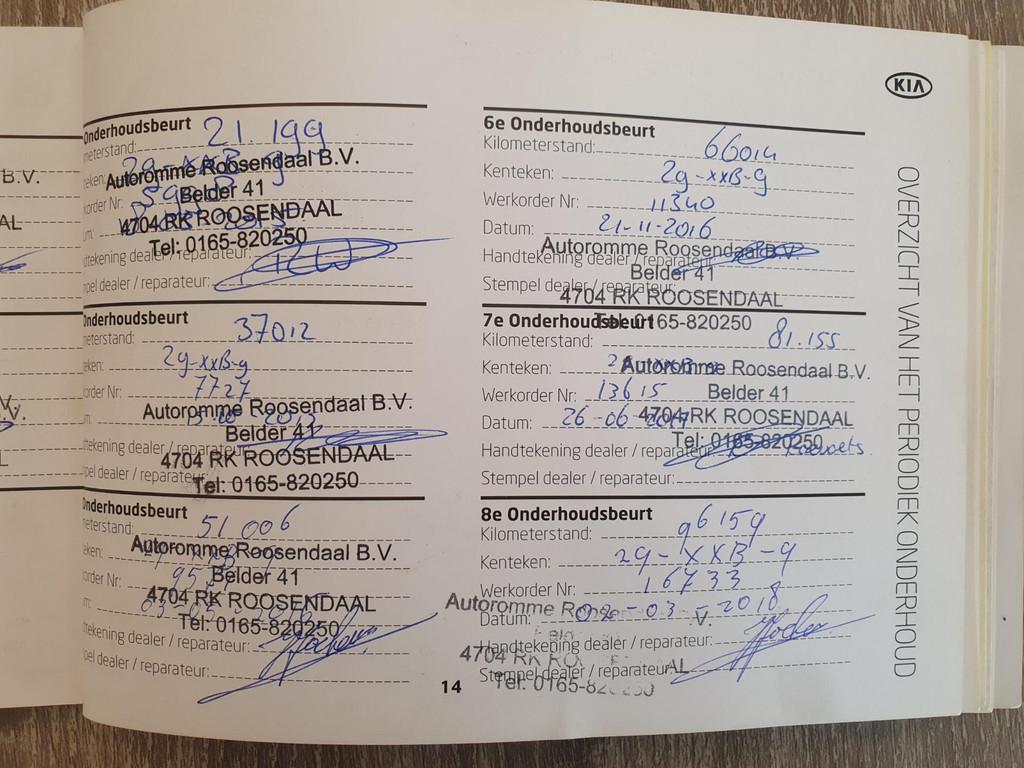 B.V.
AL
Onderhoudsbeurt
meterstand: 21.199
Autoromme Roosendaal B.V.
Belder 41
4704 RK ROOSENDAAL
Tel: 0165-820250
dtekening dealer / reparateur:
pel dealer / reparateur:
Onderhoudsbeurt
meterstand: 37012
eken: 29-XXB-9
order Nr: 7727
Autoromme Roosendaal B.V.
Belder 41
dtekening dealer / reparateur:
4704 RK ROOSENDAAL
pel dealer / reparateur:
Tel: 0165-820250
Onderhoudsbeurt
eterstand: 51.006
Autoromme Roosendaal B.V.
eken:
Belder 41
order Nr:
4704 RK ROOSENDAAL
Tel: 0165-820250
dtekening dealer / reparateur:
pel dealer / reparateur:
14
6e Onderhoudsbeurt
Kilometerstand: 66014
Kenteken: 29-XXB-9
Werkorder Nr: 11340
Datum: 21-11-2016
Autoromme Roosendaal B.V.
Handtekening dealer / reparateur:
Belder 41
Stempel dealer / reparateur:
4704 RK ROOSENDAAL
Tel: 0165-820250
7e Onderhoudsbeurt
Kilometerstand: 81.155
Kenteken:
Autoromme Roosendaal B.V.
Werkorder Nr: 13615
Belder 41
Datum: 26-06-2017
4704 RK ROOSENDAAL
Tel: 0165-820250
Handtekening dealer / reparateur:
Stempel dealer / reparateur:
8e Onderhoudsbeurt
Kilometerstand: 96159
Kenteken: 29-XXB-9
Werkorder Nr: 16733
Autoromme
Datum: 02-03-2018
V.
Handtekening dealer / reparateur:
4704 RK
Stempel dealer / reparateur:
Tel: 0165-820250
KIA
OVERZICHT VAN HET PERIODIEK ONDERHOUD